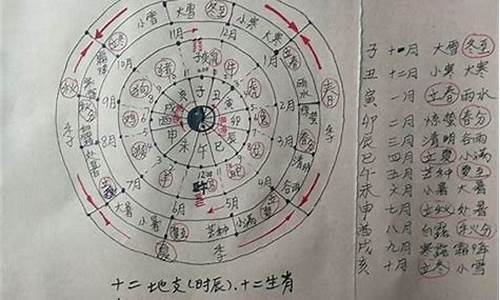 小雪 大雪 冬至 小寒 大寒
立冬 11月 12月 1月 立春
10月 2月 雨水
9月 3月 惊蛰 春分
8月 4月 清明
7月 6月 5月 谷雨
秋 季
春 季
夏 季
猪 鼠 牛
狗 鸡
子 丑 寅 卯 辰 巳 午 未 申 酉 戌 亥
立秋 大暑 小暑 夏至 芒种 小满 立夏
秋分 处暑
子 十一月 大雪 冬至
丑 十二月 小寒 大寒
寅 一月 立春 雨水
卯 二月 惊蛰 春分
辰 三月 清明 谷雨
巳 四月 立夏 小满
午 五月 芒种 夏至
未 六月 小暑 大暑
申 七月 立秋 处暑
酉 八月 白露 秋分
戌 九月 寒露 霜降
亥 十月 立冬 小雪
十二地支(时辰)、十二生肖